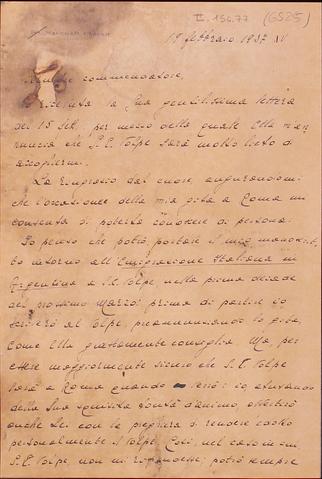 II. 156.77 (GS25)
19 febbraio 1937 XV
commendatore,
la Sua gentilissima lettera
del 15 per mezzo della quale Ella
S. E. Volpe sarà molto lieto di
accogliermi.
La ringrazio dal cuore, augurandomi
che l'occasione della mia gita a Roma mi
consenta di poterla conoscere di persona.
Io penso che potrò portare il mio
to intorno all'Emigrazione Italiana in
Argentina a S. E. Volpe, nella prima decade
del prossimo Marzo: prima di partire io
scriverò al Volpe, preannunziando la gita,
come Ella gratamente consiglia. Ma, per
essere maggiormente sicuro che S. E. Volpe
sarà a Roma quando verrò io,
della Sua squisita bontà d'animo,
anche Lei con la preghiera di rendere
personalmente il Volpe. Così, nel caso in cui
S. E. Volpe non mi rispondesse, potrò sempre